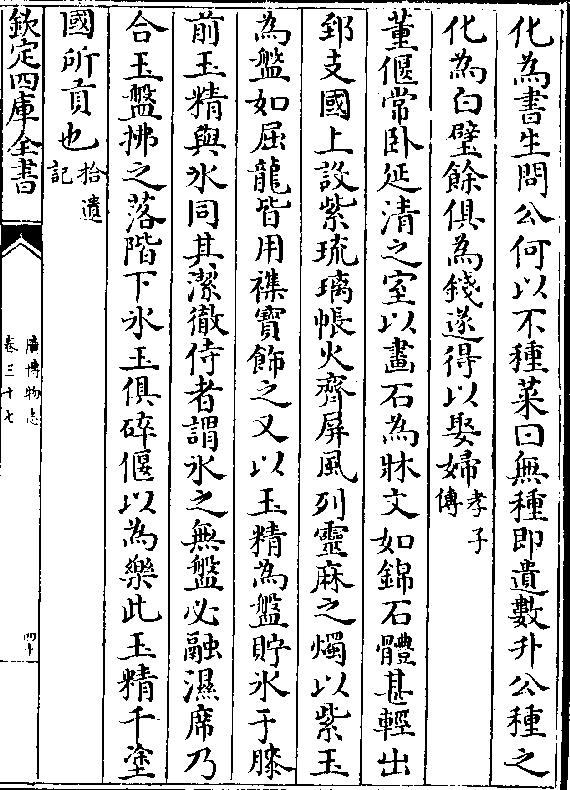 化為書生問公何以不種菜曰無種即遺數升公種之
化為白璧餘俱為錢遂得以娶婦孝子傳
董偃常卧延清之室以畫石為牀文如錦石體甚輕出
郅支國上設紫琉璃帳火齊屏風列靈麻之燭以紫玉
為盤如屈龍皆用襍寶飾之又以玉精為盤貯氷于膝
前玉精與氷同其潔徹侍者謂氷之無盤必融濕席乃
合玉盤拂之落階下氷玉俱碎偃以為樂此玉精千塗
國所貢也拾遺記
欽定四庫全書
廣博物志
卷三十七
四十